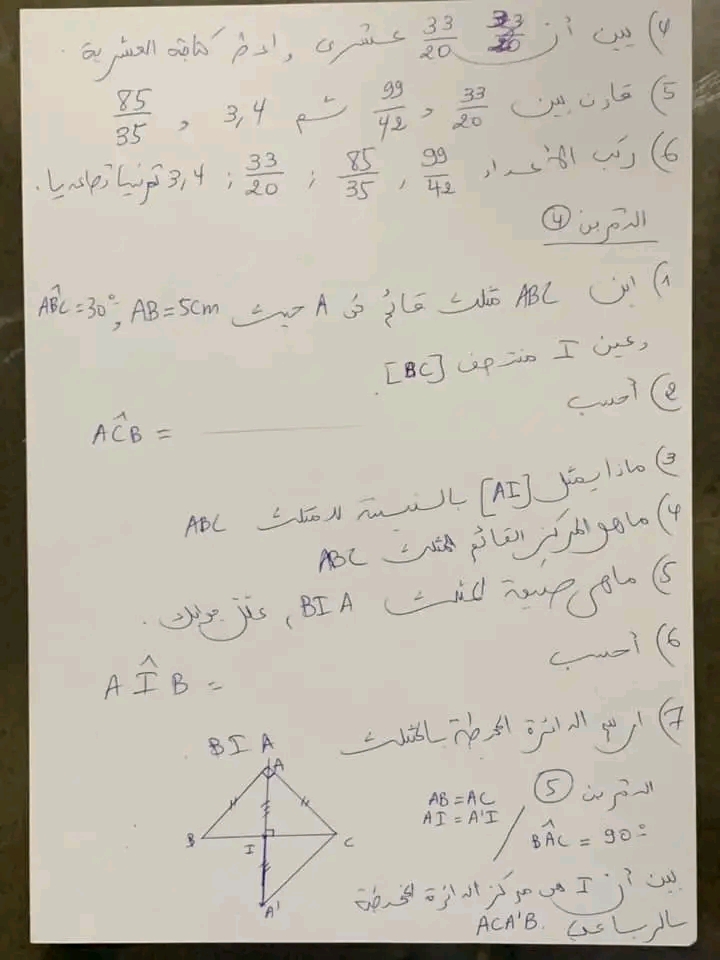 4) بين أن 33/20 عشري و ادم كتابته العشرية .
5) قارن بين 33/20 و 99/42 ثم 3,4 و 85/35
6) رتب الأعداد 99/42 , 85/35 ; 33/20 ; 3,4 ترتيبا تصاعديا .
التمرين 4
1) ابن ABC مثلث قائم في A حيث AB = 5cm , AB̂C = 30°
وعين I منتصف [BC]
2) أحسب
AĈB =
3) ماذا يمثل [AI] بالنسبة للمثلث ABC
4) ماهو المركز القائم للمثلث ABC
5) ماهي طبيعة المثلث BIA , علل جوابك .
6) أحسب
A Î B =
7) ارسم الدائرة المحيطة بالمثلث
BIA
التمرين 5
AB = AC
AI = A'I
BÂC = 90°
A
B
I
C
A'
بين أن I هو مركز الدائرة المحيطة
بالرباعي ACA'B.